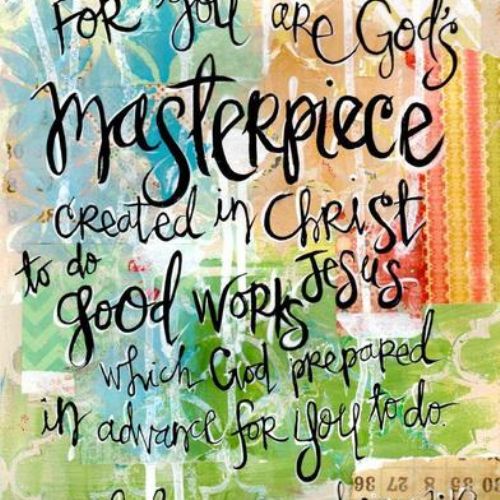 For you are God's
masterpiece
created in Christ
to do Jesus
good works
which God prepared
in advance for you to do.